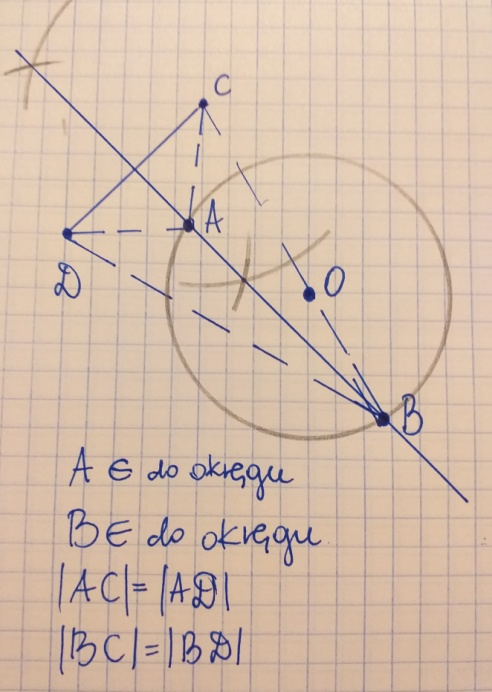 C
A
D
O
B
A ∈ do okręgu
B ∈ do okręgu
|AC|=|AD|
|BC|=|BD|